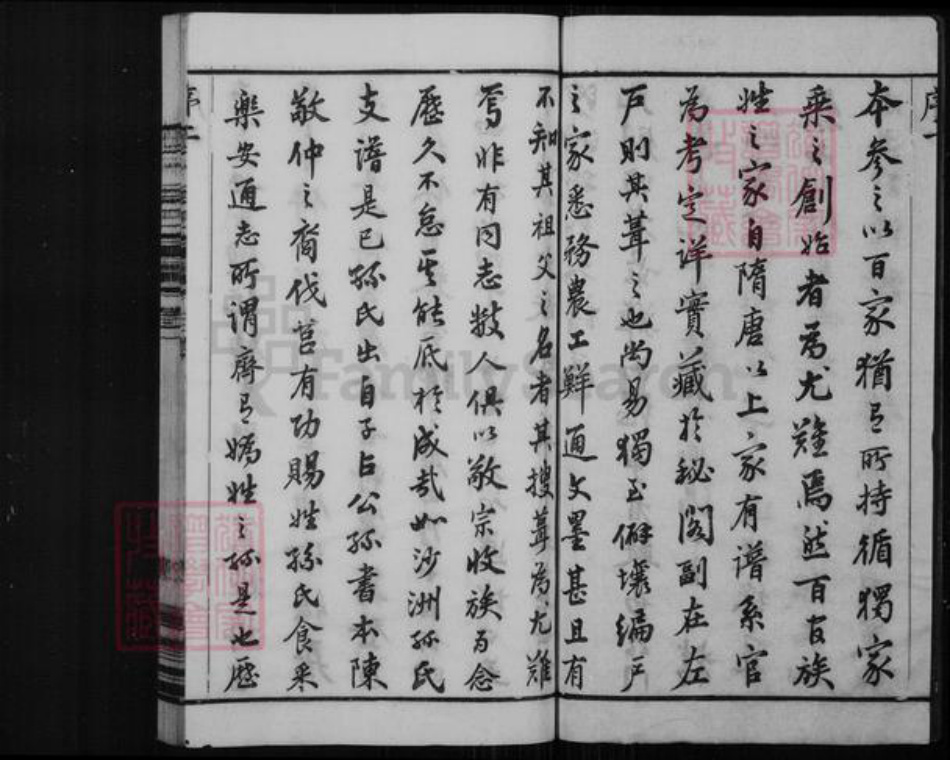 序一
本參之以百家猶有所持循獨家
乘之創始者為尤難焉然百官族
姓之家自隋唐以上家有譜系官
為考定詳實藏於秘閣副在左
戶則其葺之也尚易獨至僻壤編戶
之家悉務農工鮮通文墨甚且有
不知其祖父之名者其搜葺為尤難
焉非有同志數人俱以敬宗收族為念
歷久不怠其能底於成哉如沙洲孫氏
支譜是已孫氏出自子占公孫書本陳
敬仲之裔伐莒有功賜姓孫氏食采
樂安通志所謂齊有媯姓之孫是也歷
序二
FamilySearch